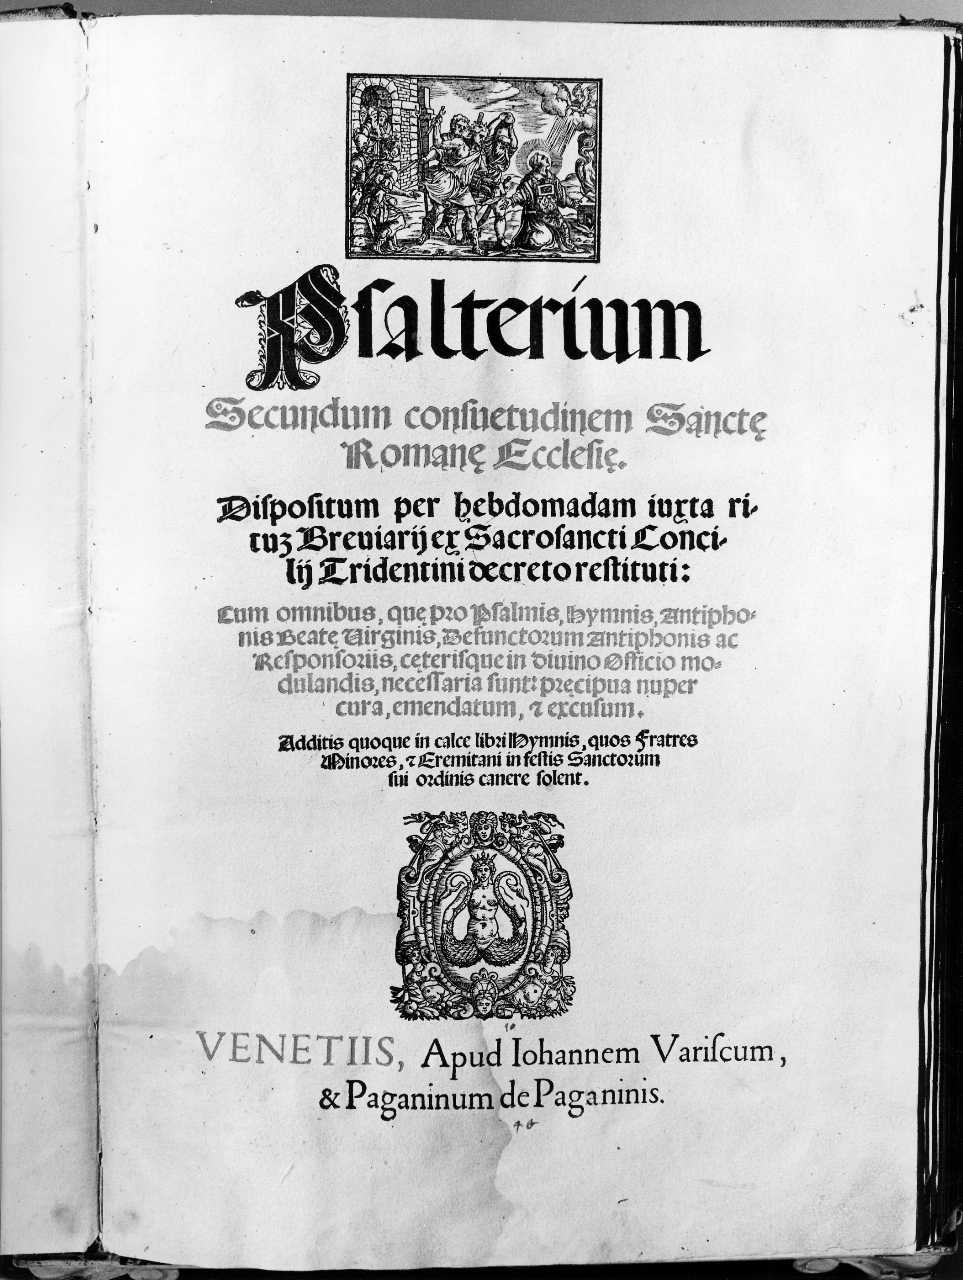 Pſalterium
Secundum conſuetudinem Sanctę
Romanę Eccleſię.
Diſpoſitum per hebdomadam iuxta ri-
tuʒ Breuiarij ex Sacroſancti Conci-
lij Tridentini decreto reſtituti:
Cum omnibus, quę pro Pſalmis, Hymnis, Antipho-
nis Beatę Uirginis, Defunctorum Antiphonis ac
Reſponſoriis, cęteriſque in diuino Officio mo-
dulandis, neceſſaria ſunt: pręcipua nuper
cura, emendatum, ⁊ excuſum.
Additis quoque in calce libri Hymnis, quos Fratres
Minores, ⁊ Eremitani in feſtis Sanctorum
ſui ordinis canere ſolent.
VENETIIS, Apud Iohannem Variſcum,
& Paganinum de Paganinis.